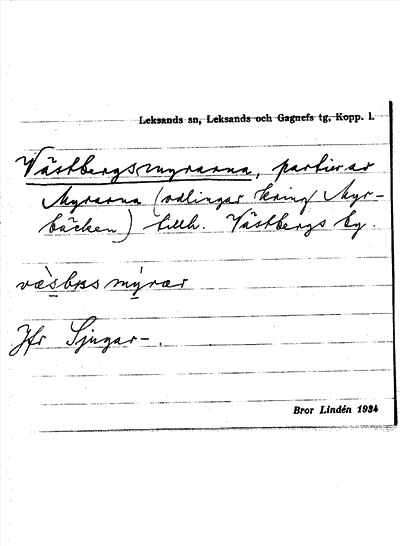 Leksands sn, Leksands och Gagnefs tg, Kopp. l.
Västbergsmyrarna, partier av
Myrarna (odlingar kring Myr-
bäcken) tillh. Västbergs by.
væ̀sbɷss mýrar
Jfr Sjugar-.
Bror Lindén 1934